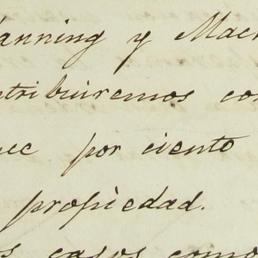 anning y Mack
tribuiremos con
que por ciento
propiedad.
s casos como